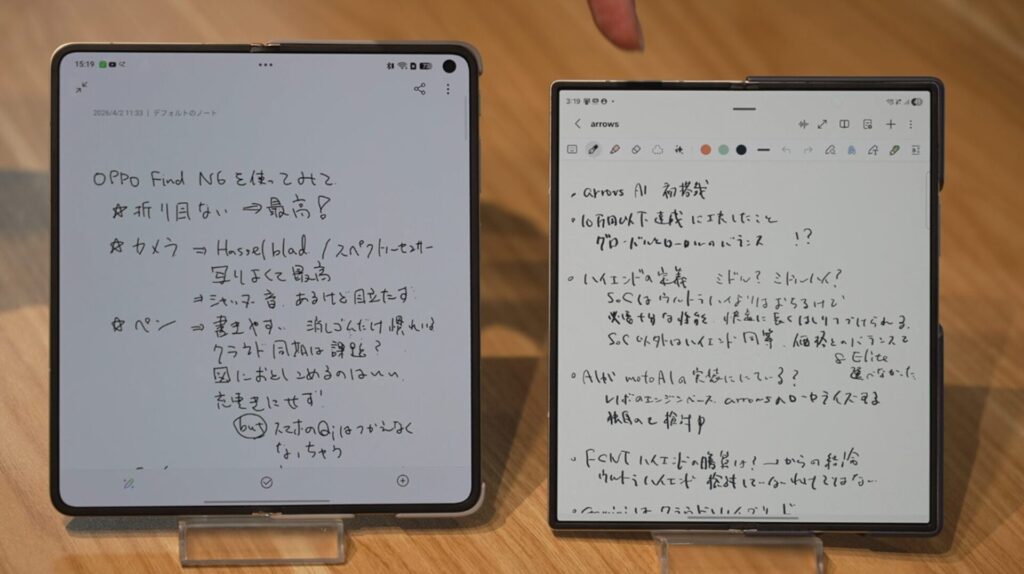 15:19
72
2026/4/2 11:33 | デフォルトのノート
OPPO Find N6を使ってみて
☆折り目ない ⇒最高!
☆カメラ ⇒ Hasselblad / スペクトルセンサー
写りよくて最高
⇒シャッター音、あるけど目立たず
☆ペン ⇒ 書きやすい 消しゴムだけ慣れいる
クラウド同期は課題?
図におとしこめるのはいい
充電気にせず
but スマホのQiはつかえなく
なっちゃう
3:19
arrows
・arrows AI 初搭載
・10万円以下達成に工夫したこと
グローバルとローカルのバランス !?
・ハイエンドの定義 ミドル? ミドルハイ?
SoCはウルトラハイよりはおちるけど
必要十分な性能、快適に長くはしりつづけられる。
SoC以外はハイエンド同等、価格とのバランスで
8 Elite
選べなかった
・AIが motoAIの実装ににている?
レノボのエンジンベース、arrowsのローカライズする
独自のも検討中
・FCNT ハイエンドの勝算は? →からの結論
ウルトラハイエンド 検討していないわけではない
・Geminiは クラウドとハイブリッド